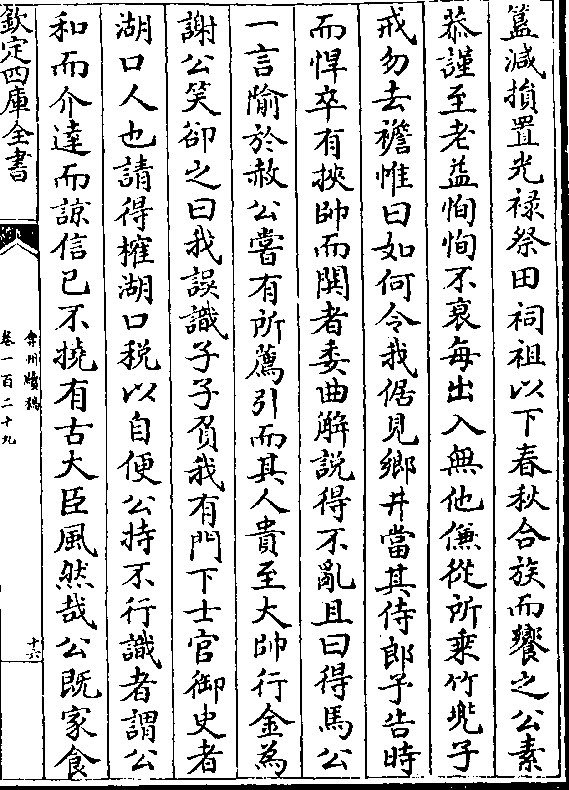 簋減損置光祿祭田祠祖以下春秋合族而饗之公素
恭謹至老益恂恂不衰每出入無他傔從所乘竹兠子
戒勿去襜帷曰如何令我倨見鄉井當其侍郎予告時
而悍卒有挾帥而鬨者委曲解說得不亂且曰得馬公
一言隃於赦公嘗有所薦引而其人貴至大帥行金為
謝公笑卻之曰我誤識子子負我有門下士官御史者
湖口人也請得榷湖口稅以自便公持不行識者謂公
和而介達而諒信已不撓有古大臣風然哉公既家食
欽定四庫全書
弇州續稿
卷一百二十九
十六